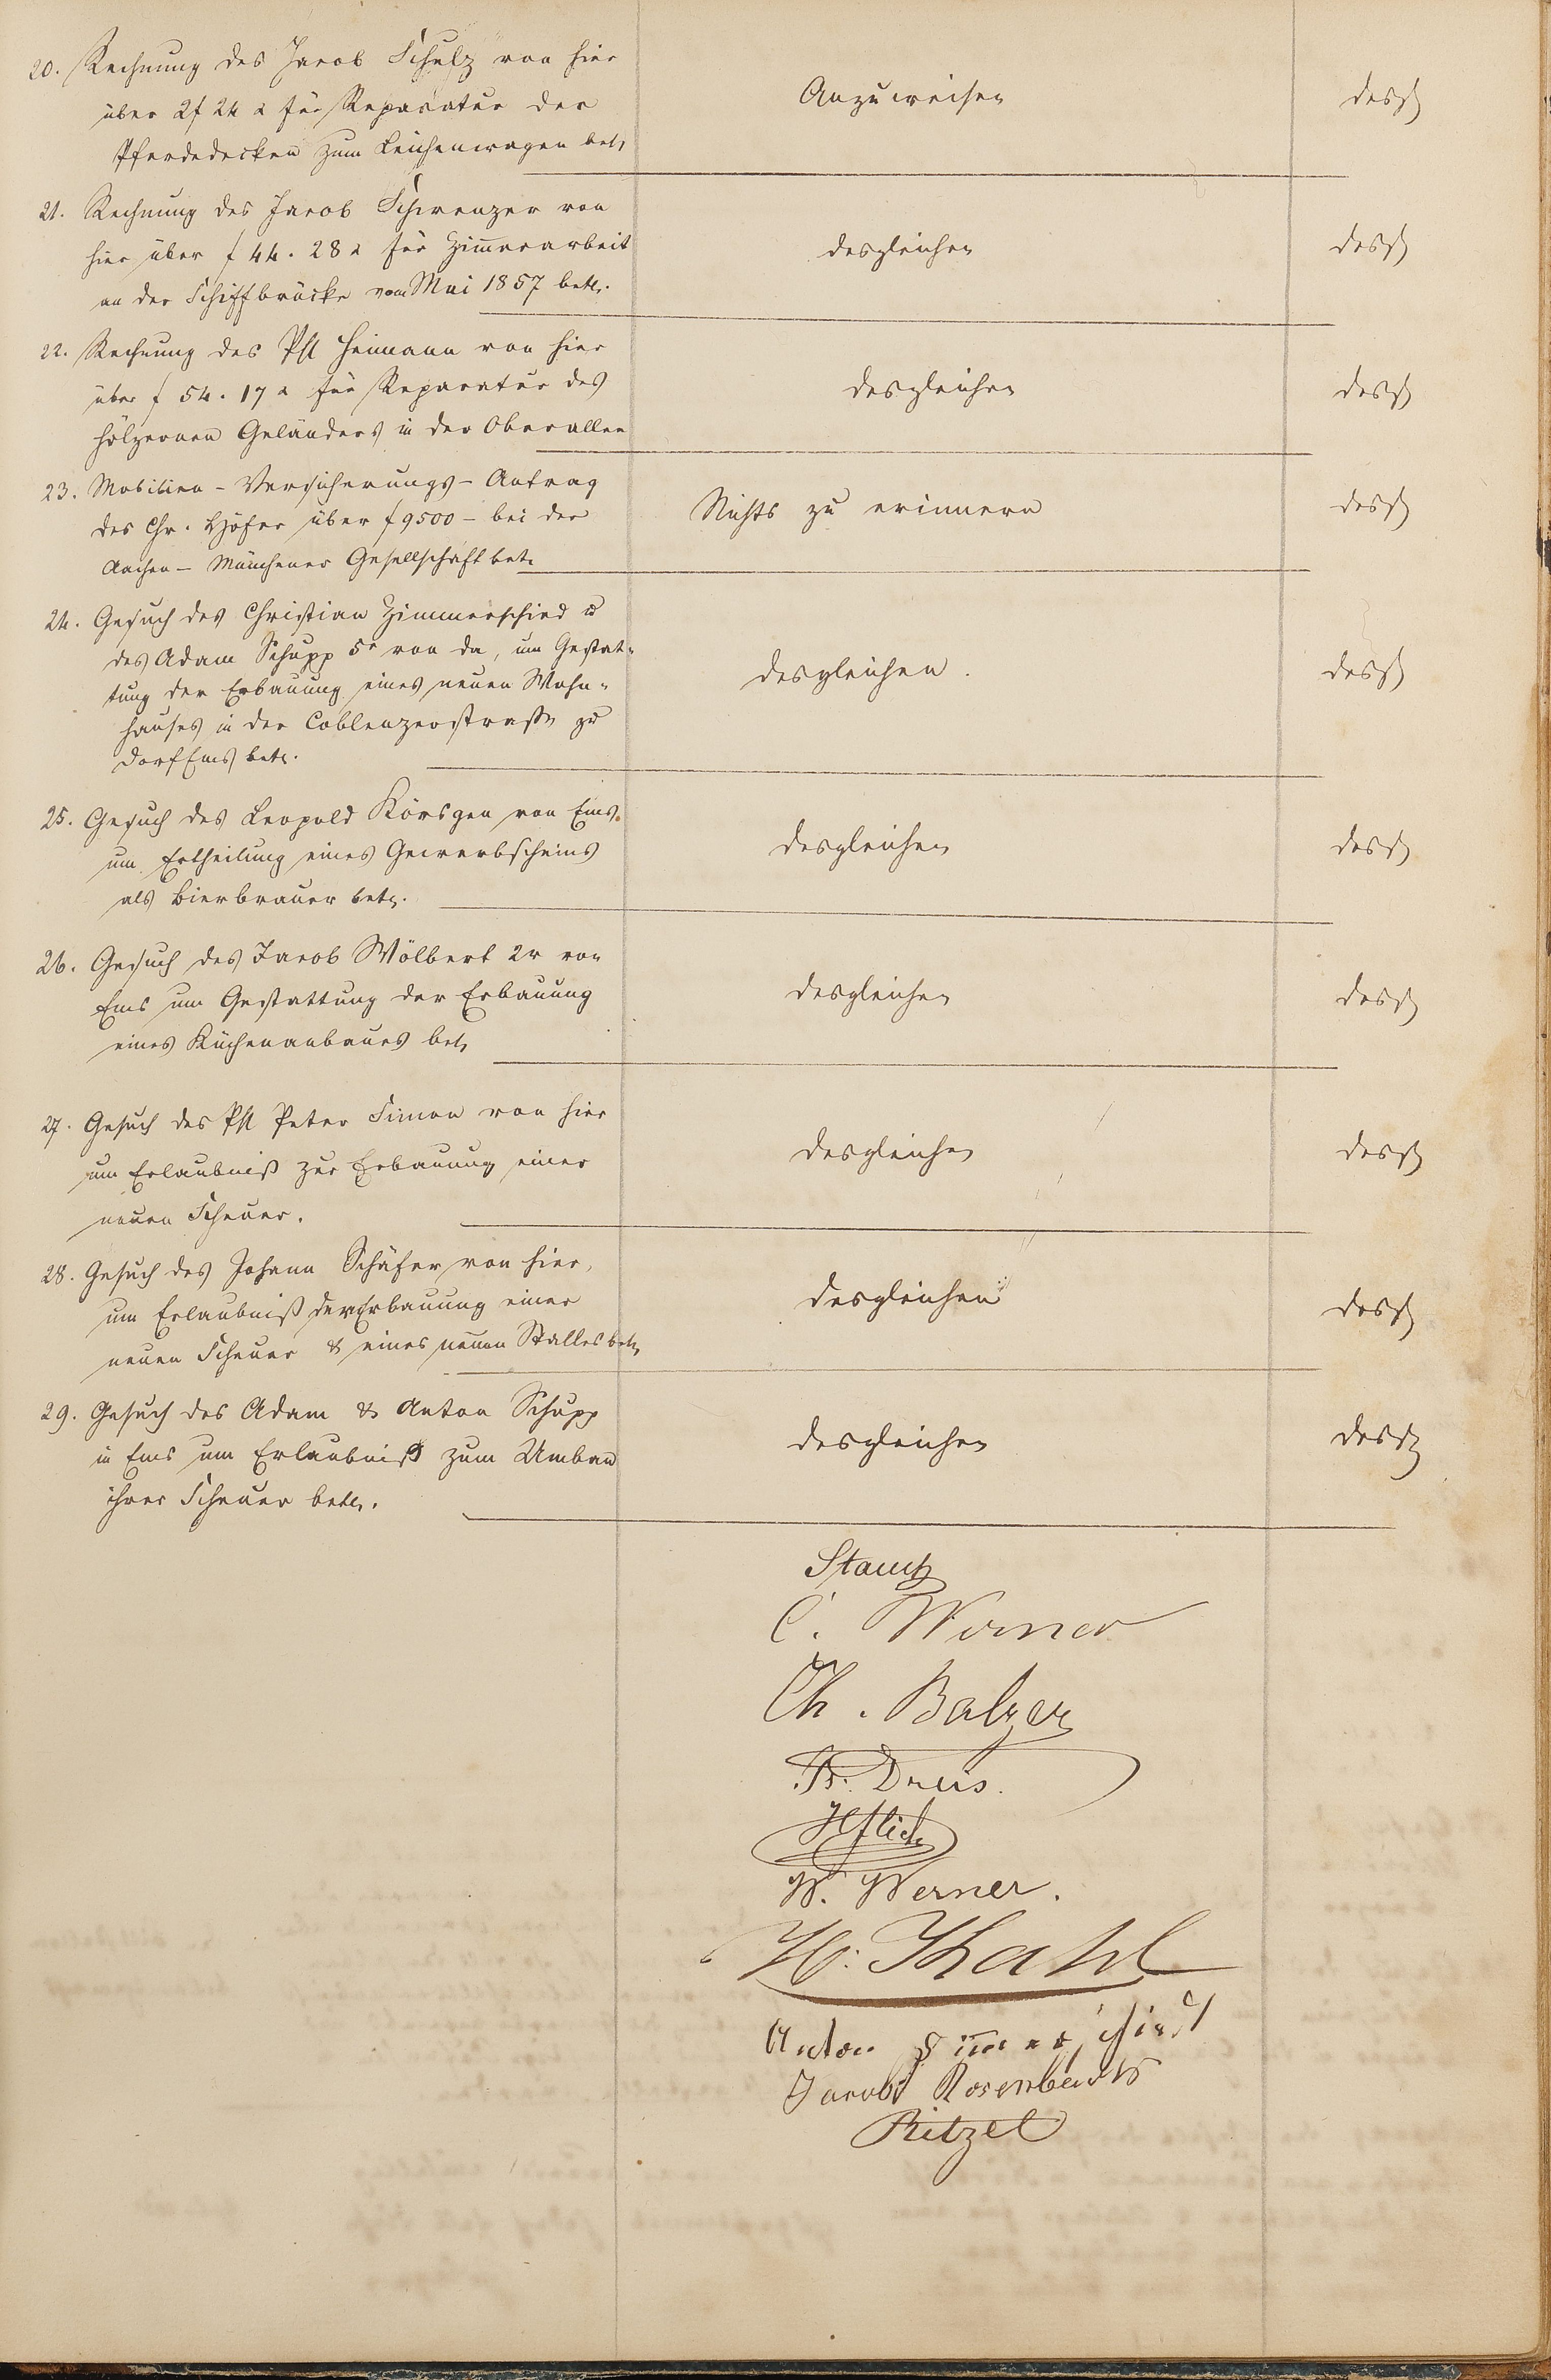 20. Rechnung des Jacob Schulz von hier
über 2f 24 x für Reparatur der
Pferdedecken zum Leichenwagen betr
Anzuweisen
desgl
21. Rechnung des Jacob Schwenzer von
hier über f 44. 28 x für Zimerarbeit
an der Schiffbrücke vom Mai 1857 betr.
desgleichen
desgl
22. Rechnung des Phl Heimann von hier
über f 54. 17 x für Reparatur des
hölzernen Geländers in der Oberallee
desgleichen
desgl
23. Mobilien-Versicherungs-Antrag
des Chr. Höfer über f 9500 - bei der
Aachen-Münchener Gesellschaft betr.
Nichts zu erinnern
desgl
24. Gesuch des Christian Zimmerschied u
des Adam Schupp 5r von da, um Gestat-
tung der Erbauung eines neuen Wohn-
hauses in der Coblenzerstraße zu
Dorf Ems betr.
desgleichen.
desgl
25. Gesuch des Leopold Körsgen von Ems.
um Ertheilung eines Gewerbscheins
als Bierbrauer betr.
desgleichen
desgl
26. Gesuch des Jacob Wölbert 2r von
Ems um Gestattung der Erbauung
eines Küchenanbaues betr
desgleichen
desgl
27. Gesuch des Phl Peter Simon von hier
um Erlaubniß zur Erbauung einer
neuen Scheuer.
desgleichen
desgl
28. Gesuch des Johann Schäfer von hier,
um Erlaubniß der Erbauung einer
neuen Scheuer & eines neuen Stalles betr
desgleichen
desgl
29. Gesuch des Adam & Anton Schupp
in Ems um Erlaubniß zum Umbau
ihrer Scheuer betr.
desgleichen
desgl
C. Werner
Ch. Balzer
Dreis.
W. Werner.
H. Kahl
Anton Zimerschied
Jacob Rosenbach
Ritzel